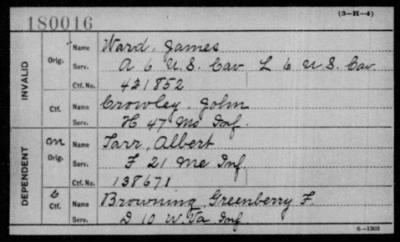 180016
(3-H-4)
INVALID
Orig.
Name Ward, James
Serv. A 6 U.S. Cav L 6 U.S. Cav.
Ctf. No. 421852
Ctf.
Name Crowley, John
Serv. H 47 Mo Inf.
DEPENDENT
on
Orig.
Name Tarr, Albert
Serv. F 21 Me Inf.
Ctf. No. 138671
Ctf.
Name Browning, Greenberry F.
Serv. D 10 W. Va Inf
6-1302